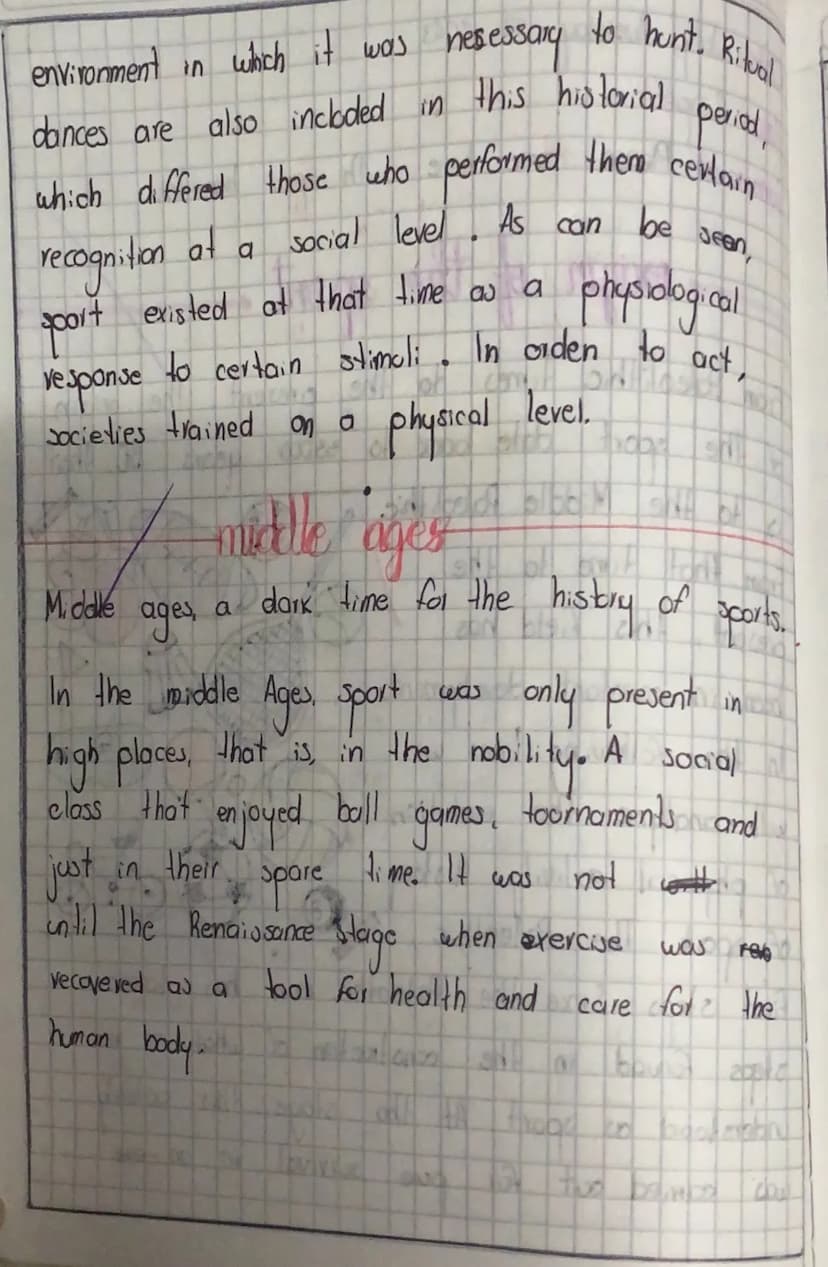 environment in which it was nesessary to hunt. Ritual
dances are also incloded in this historial period,
which differed those who performed them certain
recognition at a social level. As can be seen,
sport existed at that time as a physiological
response to certain stimoli. In orden to act,
societies trained on a physical level.
middle ages
Middle ages, a dark time for the history of sports.
In the middle Ages, sport was only present in
high places, that is, in the nobility. A social
class that enjoyed ball games, toornaments and
just in their spare time. It was not
until the Renaissance stage when exercise was
recovered as a tool for health and care for the
human body.